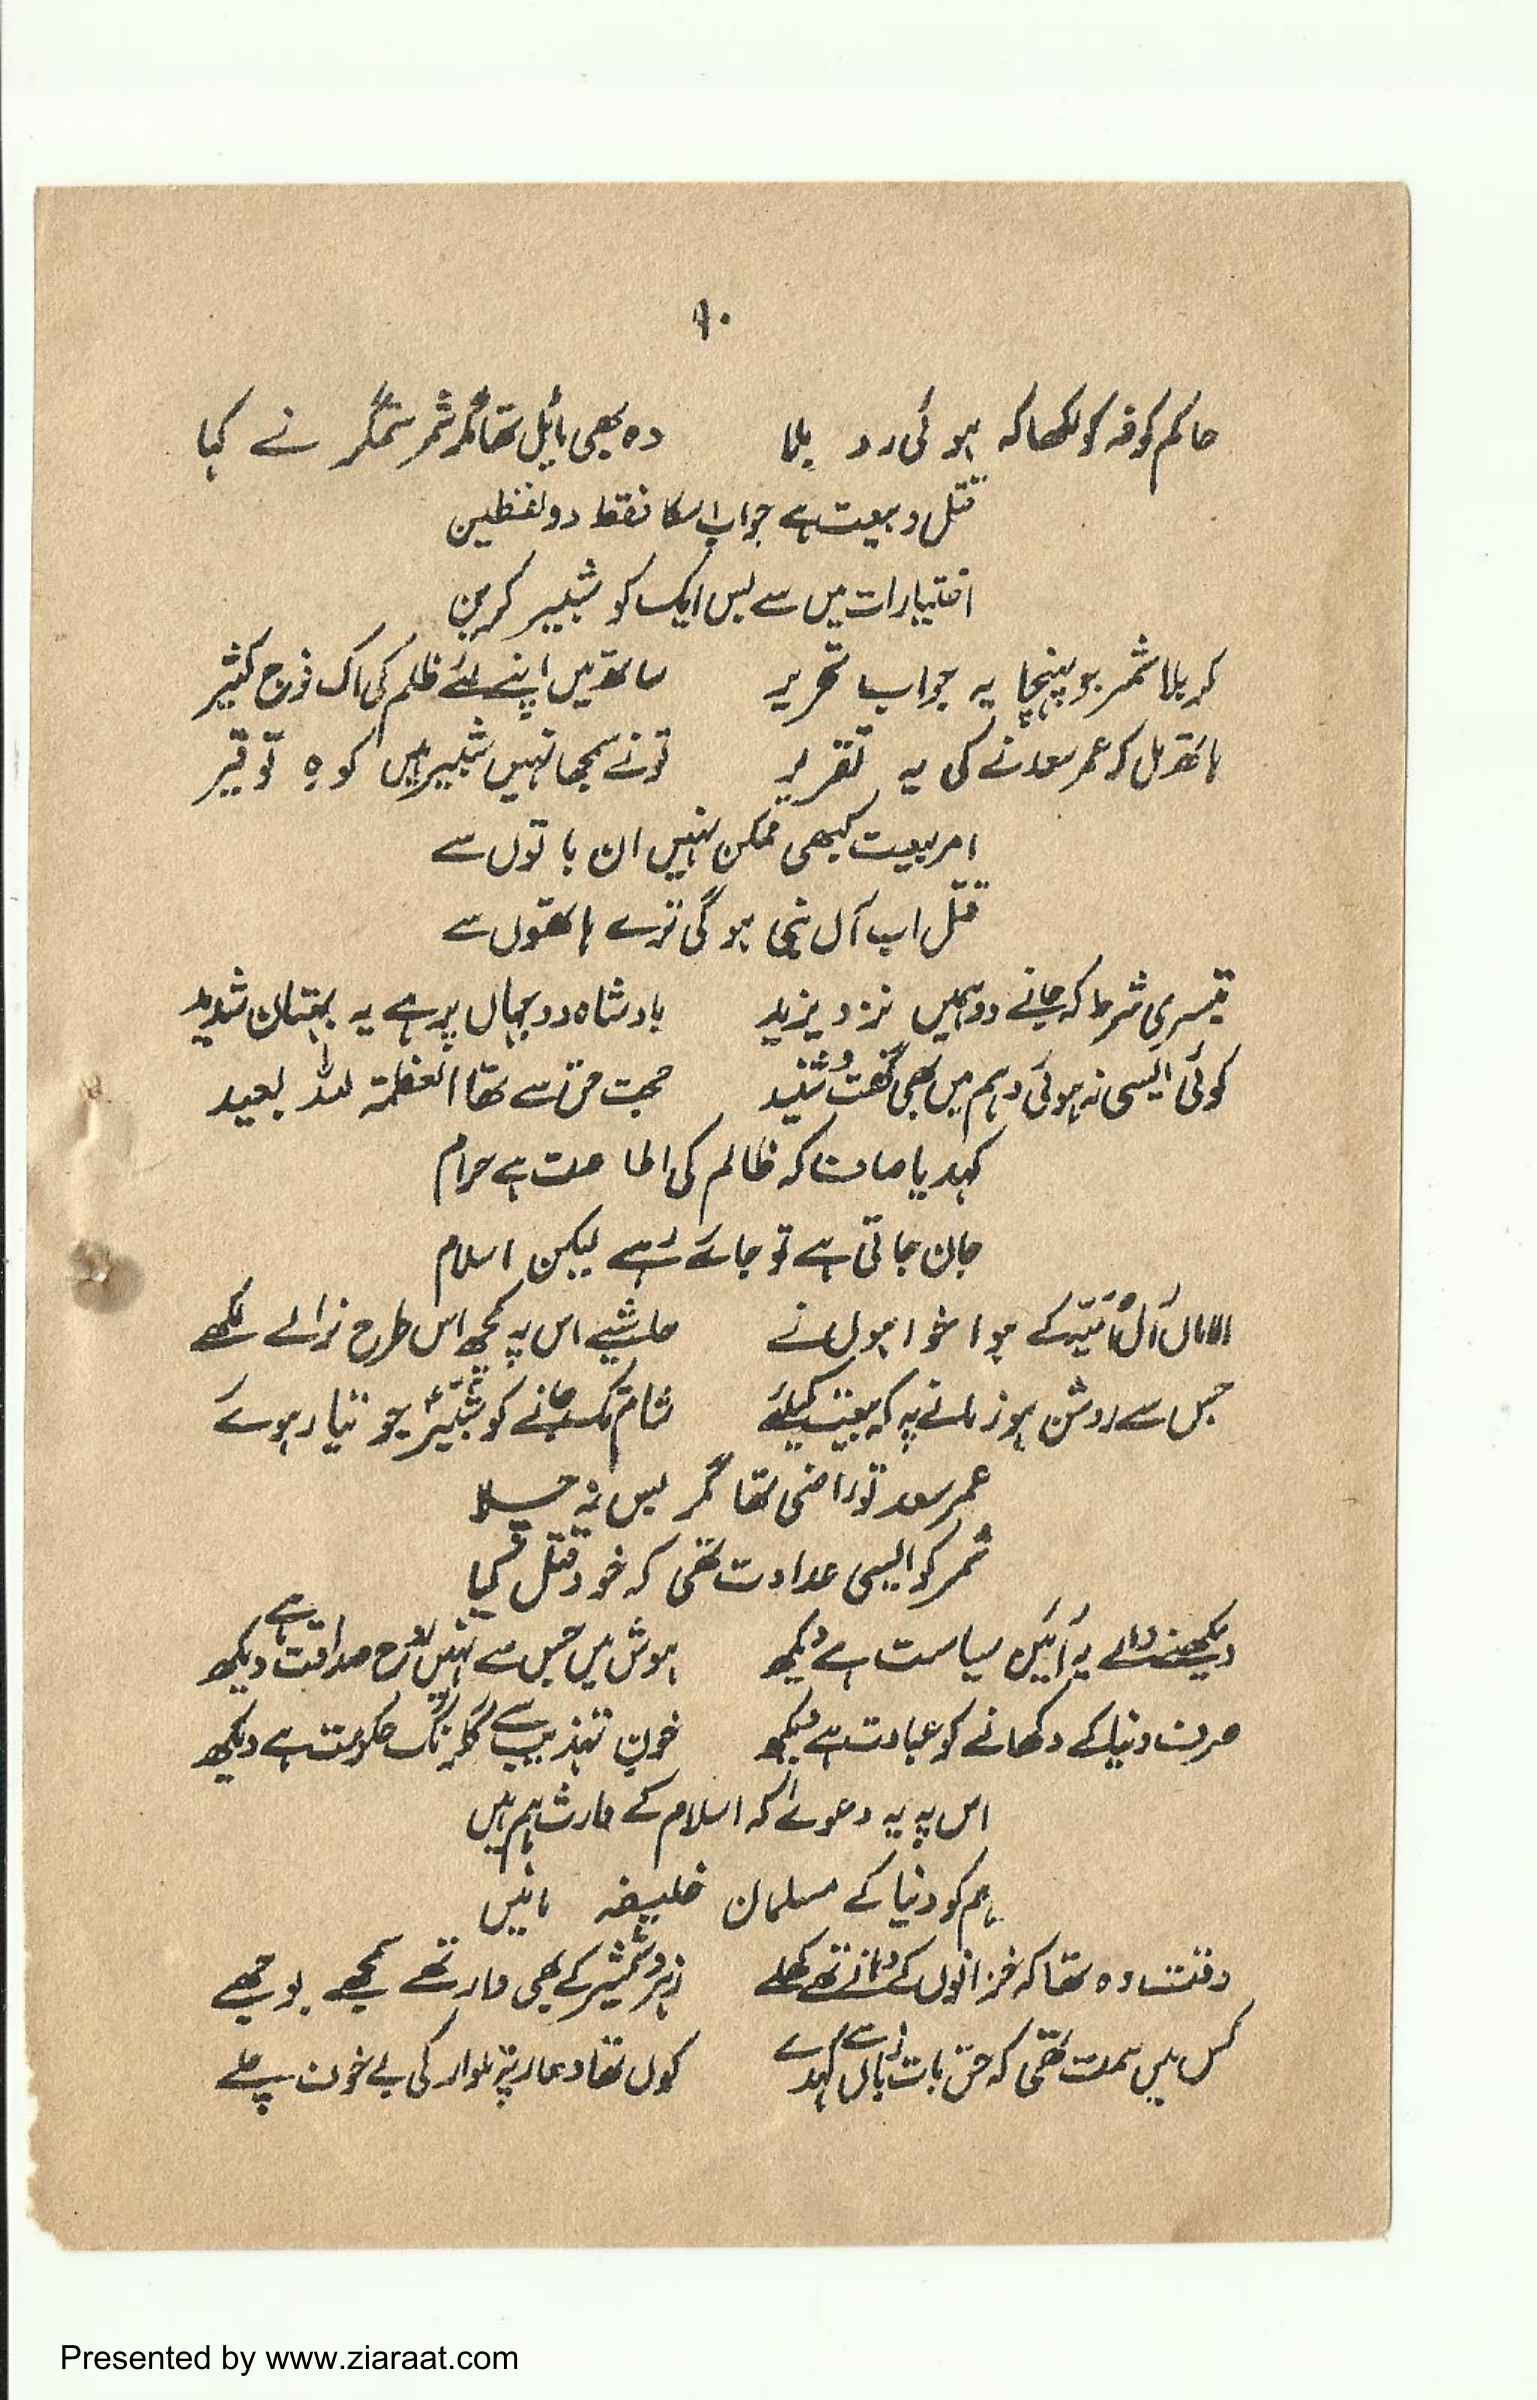 ۹۰
حاکم کوفہ کو لکھا کہ ہوئی رد بلا وہ بھی مائل تھا مگر شمر ستمگر نے کہا
قتل و بیعت ہے جواب اسکا فقط دو لفظیں
اختیارات میں سے بس ایک کو شبیر کریں
کربلا شمر جو پہنچا یہ جواب تحریر ساتھ میں اپنے لئے ظلم کی اک فوج کثیر
ہاتھ مل کر عمر سعد نے کی یہ تقریر تو نے سمجھا نہیں شبیر ہیں کوہِ توقیر
امر بیعت کبھی ممکن نہیں ان باتوں سے
قتل اب آل نبی ہوگی ترے ہاتھوں سے
تیسری شرط کہ جانے دو ہمیں نزد یزید بادشاہ دو جہاں پر ہے یہ بہتان شدید
کوئی ایسی نہ ہوئی وہم میں بھی گفت و شنید حجت حق سے تھا العظمۃ للہ بعید
کہدیا صاف کہ ظالم کی اطاعت ہے حرام
جان جاتی ہے تو جائے رہے لیکن اسلام
الاماں آل اُمَیّہ کے ہوا خواہوں نے حاشیے اس پہ کچھ اس طرح نرالے لکھے
جس سے روشن ہو زمانے پہ کہ بیعت کیلئے شام تک جانے کو شبیرؑ جو تیار ہوئے
عمر سعد تو راضی تھا مگر بس نہ چلا
شمر کو ایسی عداوت تھی کہ خود قتل کیا
دیکھنے والے یہ آئین سیاست ہے دیکھ ہوش میں جس سے نہیں روح صداقت ہے دیکھ
صرف دنیا کے دکھانے کو عبادت ہے دیکھ خون تہذیب سے گلرنگ حکومت ہے دیکھ
اس پہ یہ دعوےٰ کہ اسلام کے وارث ہم ہیں
ہم کو دنیا کے مسلمان خلیفہ مانیں
وقت وہ تھا کہ خزانوں کے دہانے تھے کھلے زہر و شمشیر کے بھی وار تھے کچھ بوجھے
کس میں ہمت تھی کہ حق بات زباں سے کہدے کون تھا دھار پہ تلوار کی بے خون چلے
Presented by www.ziaraat.com